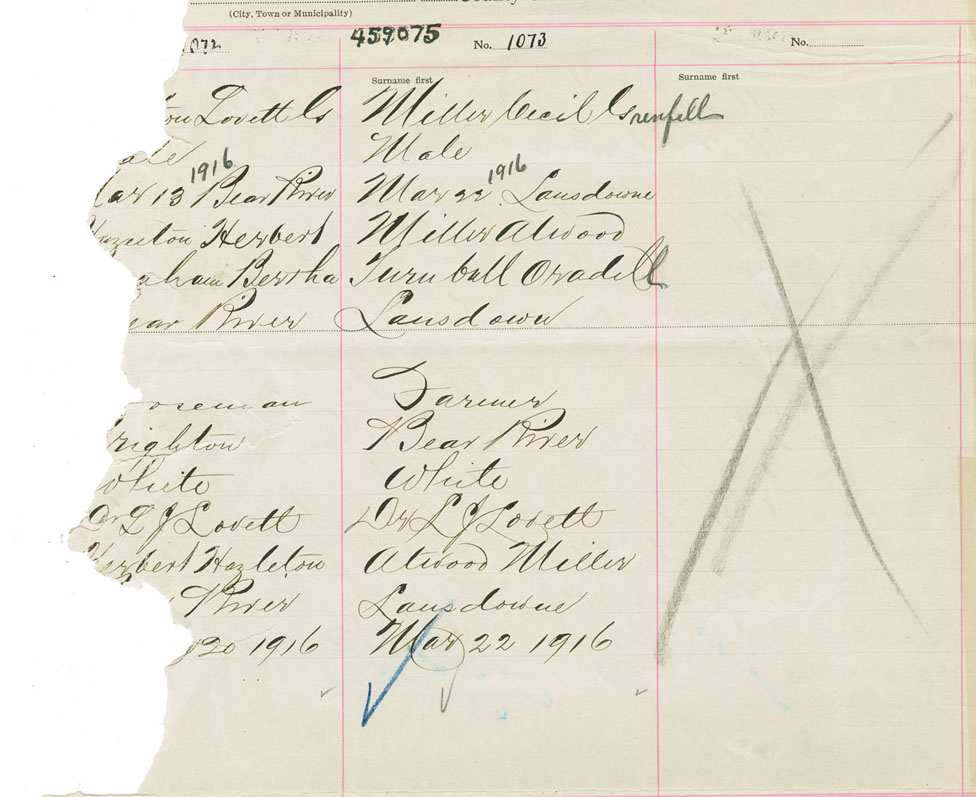 (City, Town or Municipality)
1072
459075
No. 1073
No.
Surname first
Surname first
Lovett G
Miller Cecil Grenfell
Male
1916
1916
Mar 13 Bear River
Mar 22 Lansdowne
Hazelton Herbert
Miller Atwood
Bertha
Turnbull Oradell
ear River
Lansdown
Farmer
righton
Bear River
White
White
Dr L J Lovett
Dr L J Lovett
Herbert Hazleton
Atwood Miller
River
Lansdowne
20 1916
Mar 22 1916